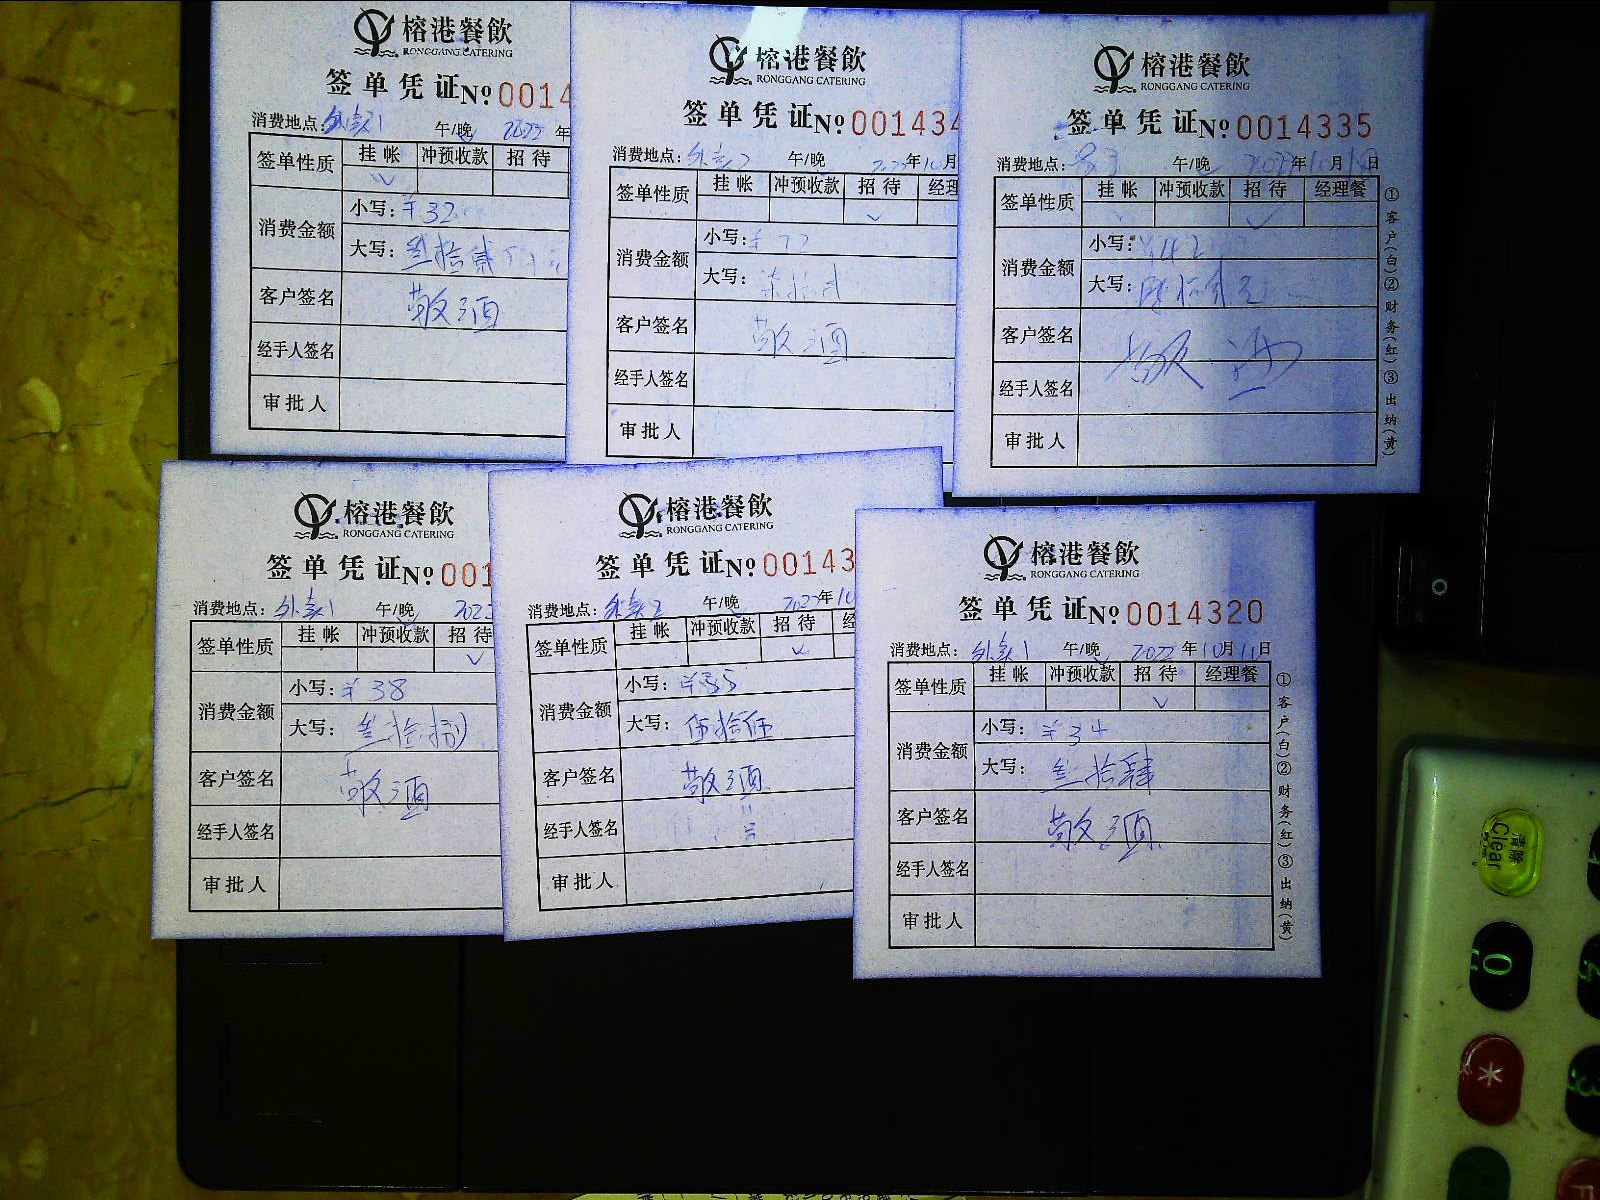 榕港餐飲
RONGGANG CATERING
签单凭证 № 0014
消费地点: 外卖1 午/晚 2022 年
签单性质 挂帐 冲预收款 招待
消费金额 小写: ¥32
大写: 叁拾贰
客户签名 敬酒
经手人签名
审批人
榕港餐飲
RONGGANG CATERING
签单凭证 № 001434
消费地点: 外卖2 午/晚 2022年10月
签单性质 挂帐 冲预收款 招待 经理
消费金额 小写: ¥72
大写: 柒拾贰
客户签名 敬酒
经手人签名
审批人
榕港餐飲
RONGGANG CATERING
签单凭证 № 0014335
消费地点: 午/晚 2022年10月 日
签单性质 挂帐 冲预收款 招待 经理餐
消费金额 小写:
大写:
客户签名
经手人签名
审批人
①客户(白)②财务(红)③出纳(黄)
榕港餐飲
RONGGANG CATERING
签单凭证 № 001
消费地点: 外卖1 午/晚 2022
签单性质 挂帐 冲预收款 招待
消费金额 小写: ¥38
大写: 叁拾捌
客户签名 敬酒
经手人签名
审批人
榕港餐飲
RONGGANG CATERING
签单凭证 № 00143
消费地点: 外卖2 午/晚 2022年10
签单性质 挂帐 冲预收款 招待
消费金额 小写: ¥55
大写: 伍拾伍
客户签名 敬酒
经手人签名
审批人
榕港餐飲
RONGGANG CATERING
签单凭证 № 0014320
消费地点: 外卖1 午/晚 2022年10月11日
签单性质 挂帐 冲预收款 招待 经理餐
消费金额 小写: ¥34
大写: 叁拾肆
客户签名 敬酒
经手人签名
审批人
①客户(白)②财务(红)③出纳(黄)
清除
Clear
0
*
3